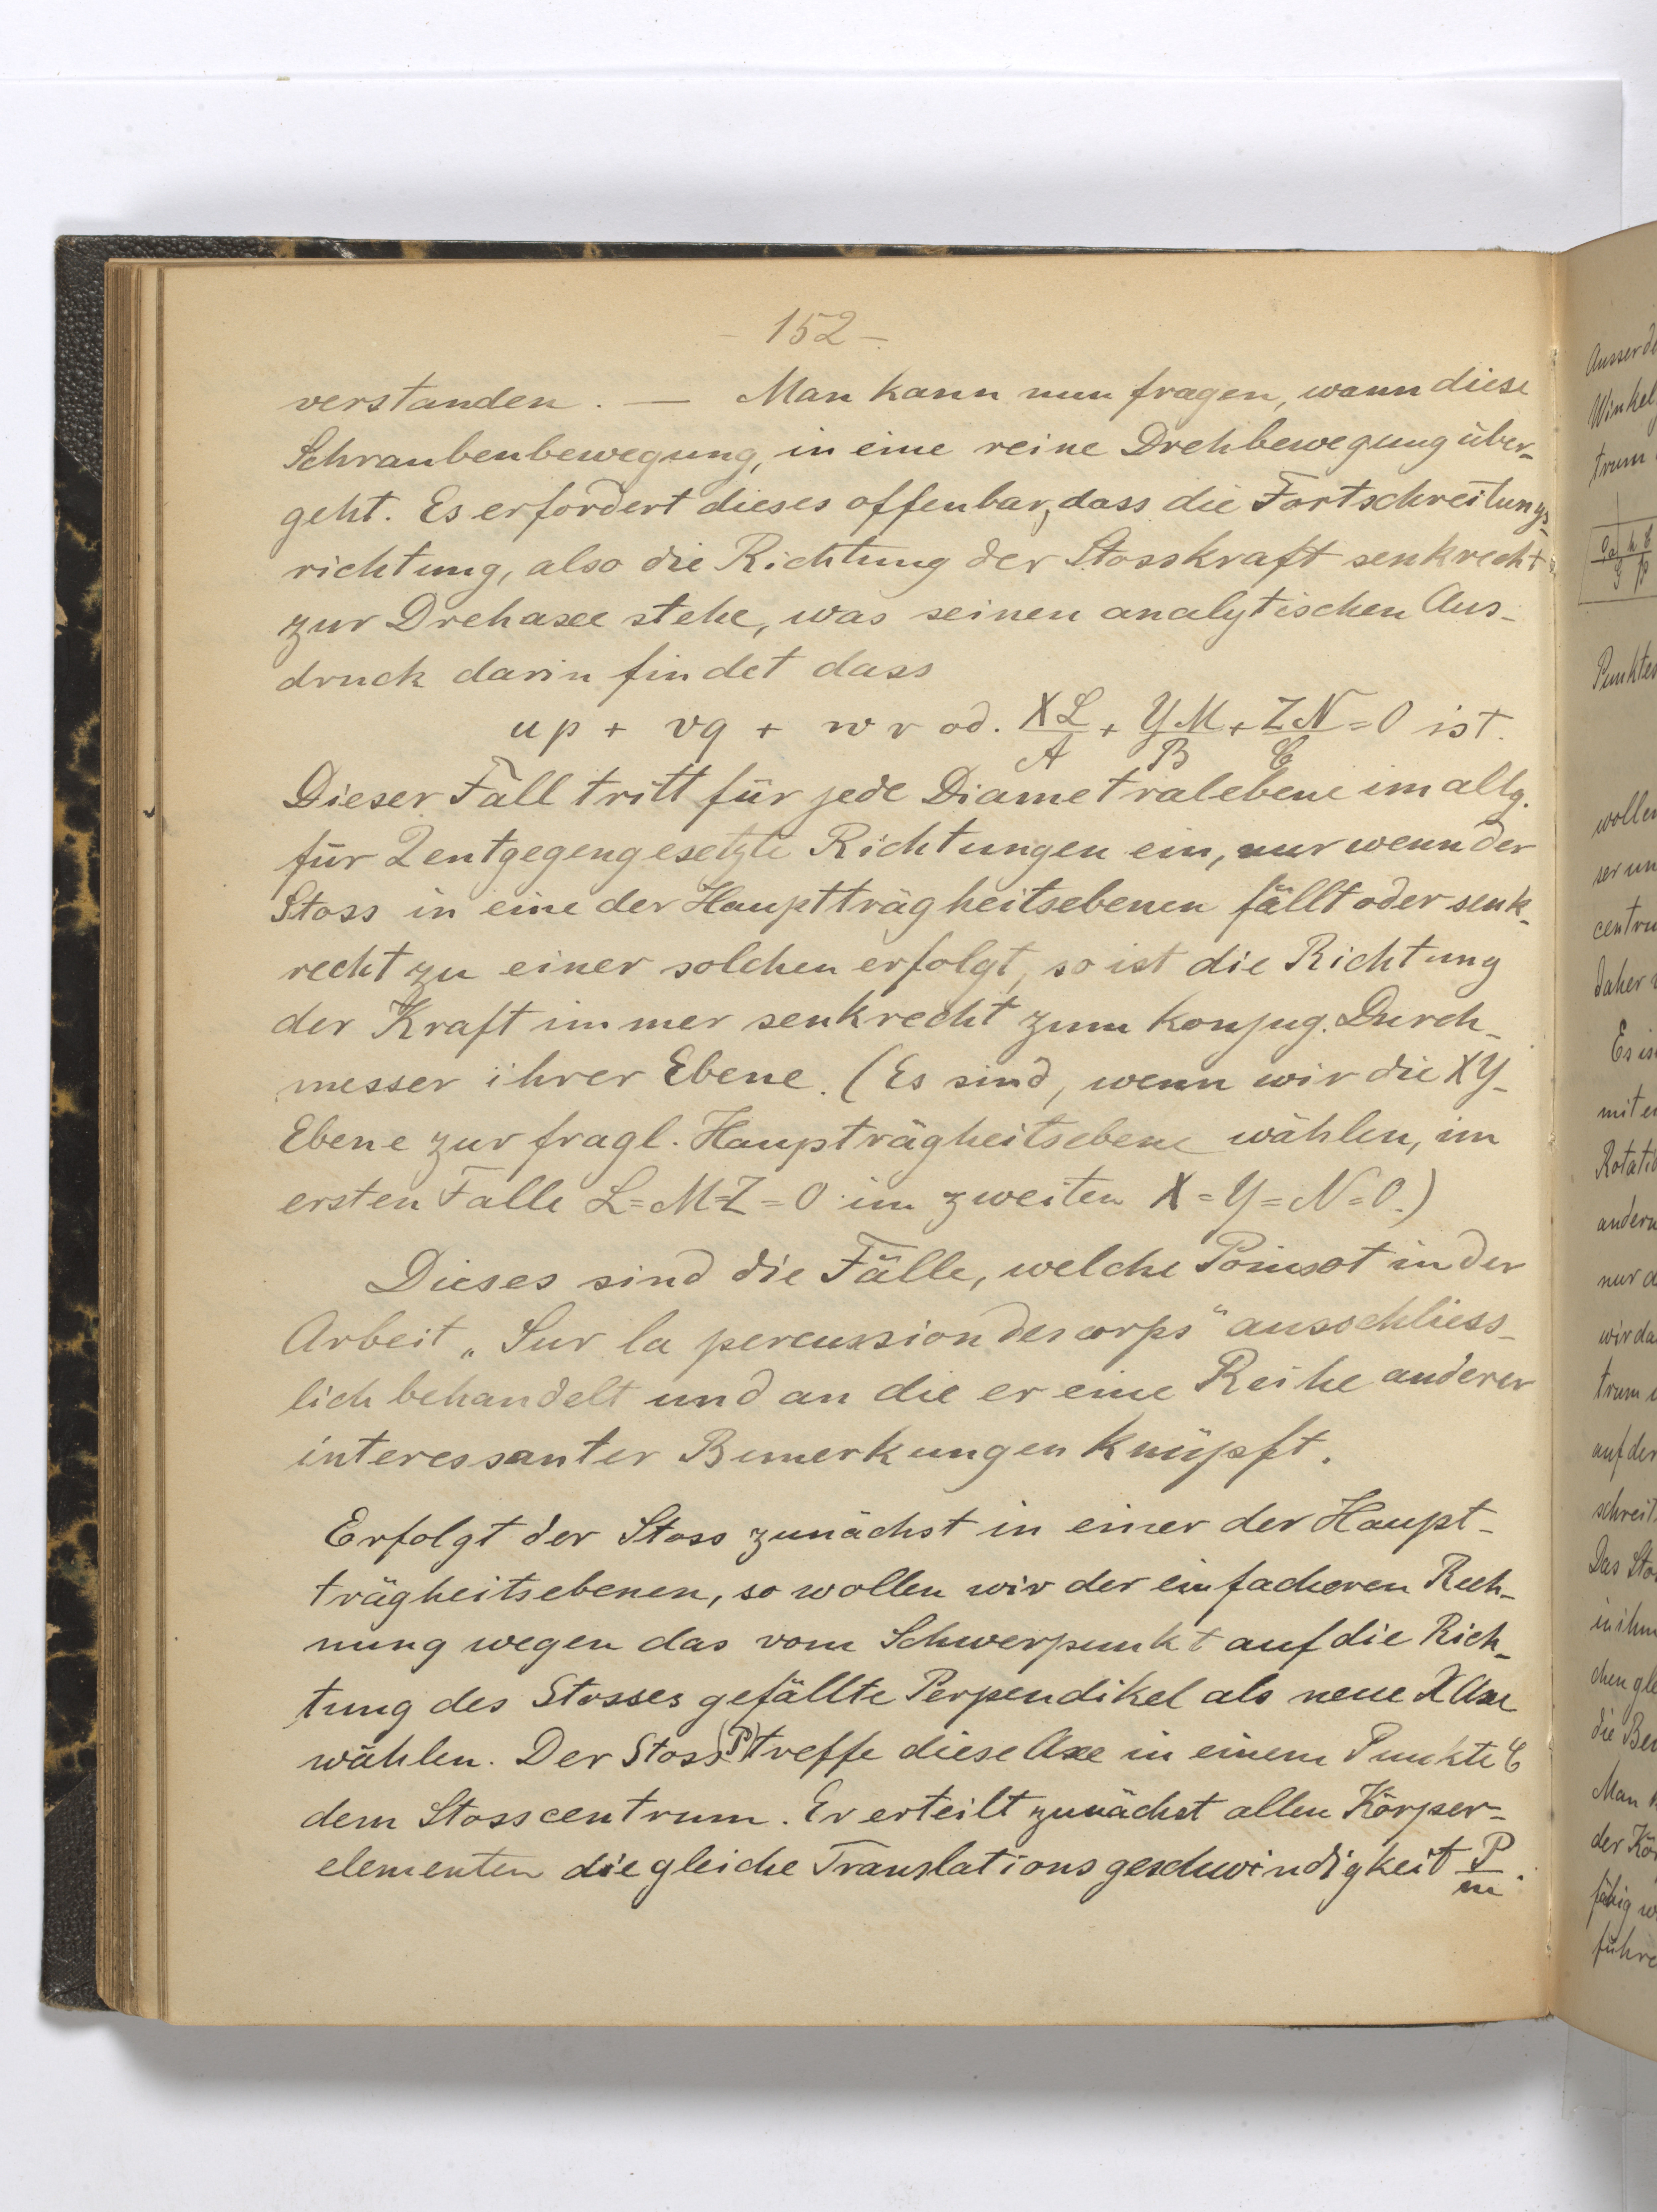 - 152 -
verstanden. — Man kann nun fragen, wann diese
Schraubenbewegung, in eine reine Drehbewegung über-
geht. Es erfordert dieses offenbar, dass die Fortschreitungs-
richtung, also die Richtung der Stosskraft senkrecht
zur Drehaxe stehe, was seinen analytischen Aus-
druck darin findet dass
up + vq + wr od. XL/A + YM/B + ZN/C = 0 ist.
Dieser Fall tritt für jede Diametralebene im allg.
für 2 entgegengesetzte Richtungen ein, nur wenn der
Stoss in eine der Hauptträgheitsebenen fällt oder senk-
recht zu einer solchen erfolgt, so ist die Richtung
der Kraft immer senkrecht zum konjug. Durch-
messer ihrer Ebene. (Es sind, wenn wir die XY-
Ebene zur fragl. Haupträgheitsebene wählen, im
ersten Falle L=M=Z=0 im zweiten X=Y=N=0.)
Dieses sind die Fälle, welche Poinsot in der
Arbeit „Sur la percussion des corps" ausschliess-
lich behandelt und an die er eine Reihe anderer
interessanter Bemerkungen knüpft.
Erfolgt der Stoss zunächst in einer der Haupt-
trägheitsebenen, so wollen wir der einfacheren Rech-
nung wegen das vom Schwerpunkt auf die Rich-
tung des Stosses gefällte Perpendikel als neue X Axe
wählen. Der Stoss (P) treffe diese Axe in einem Punkte C
dem Stosscentrum. Er erteilt zunächst allen Körper-
elementen die gleiche Translationsgeschwindigkeit P/m.
Ausser
Winkel
trum
Punkte
wollen
ser
centru
daher
Es is
mit
Rotatio
andern
nur
wir da
trum
auf der
schreit
Das Sto
in ihm
chen gle
die Be
Man
der Kö
fähig
führe